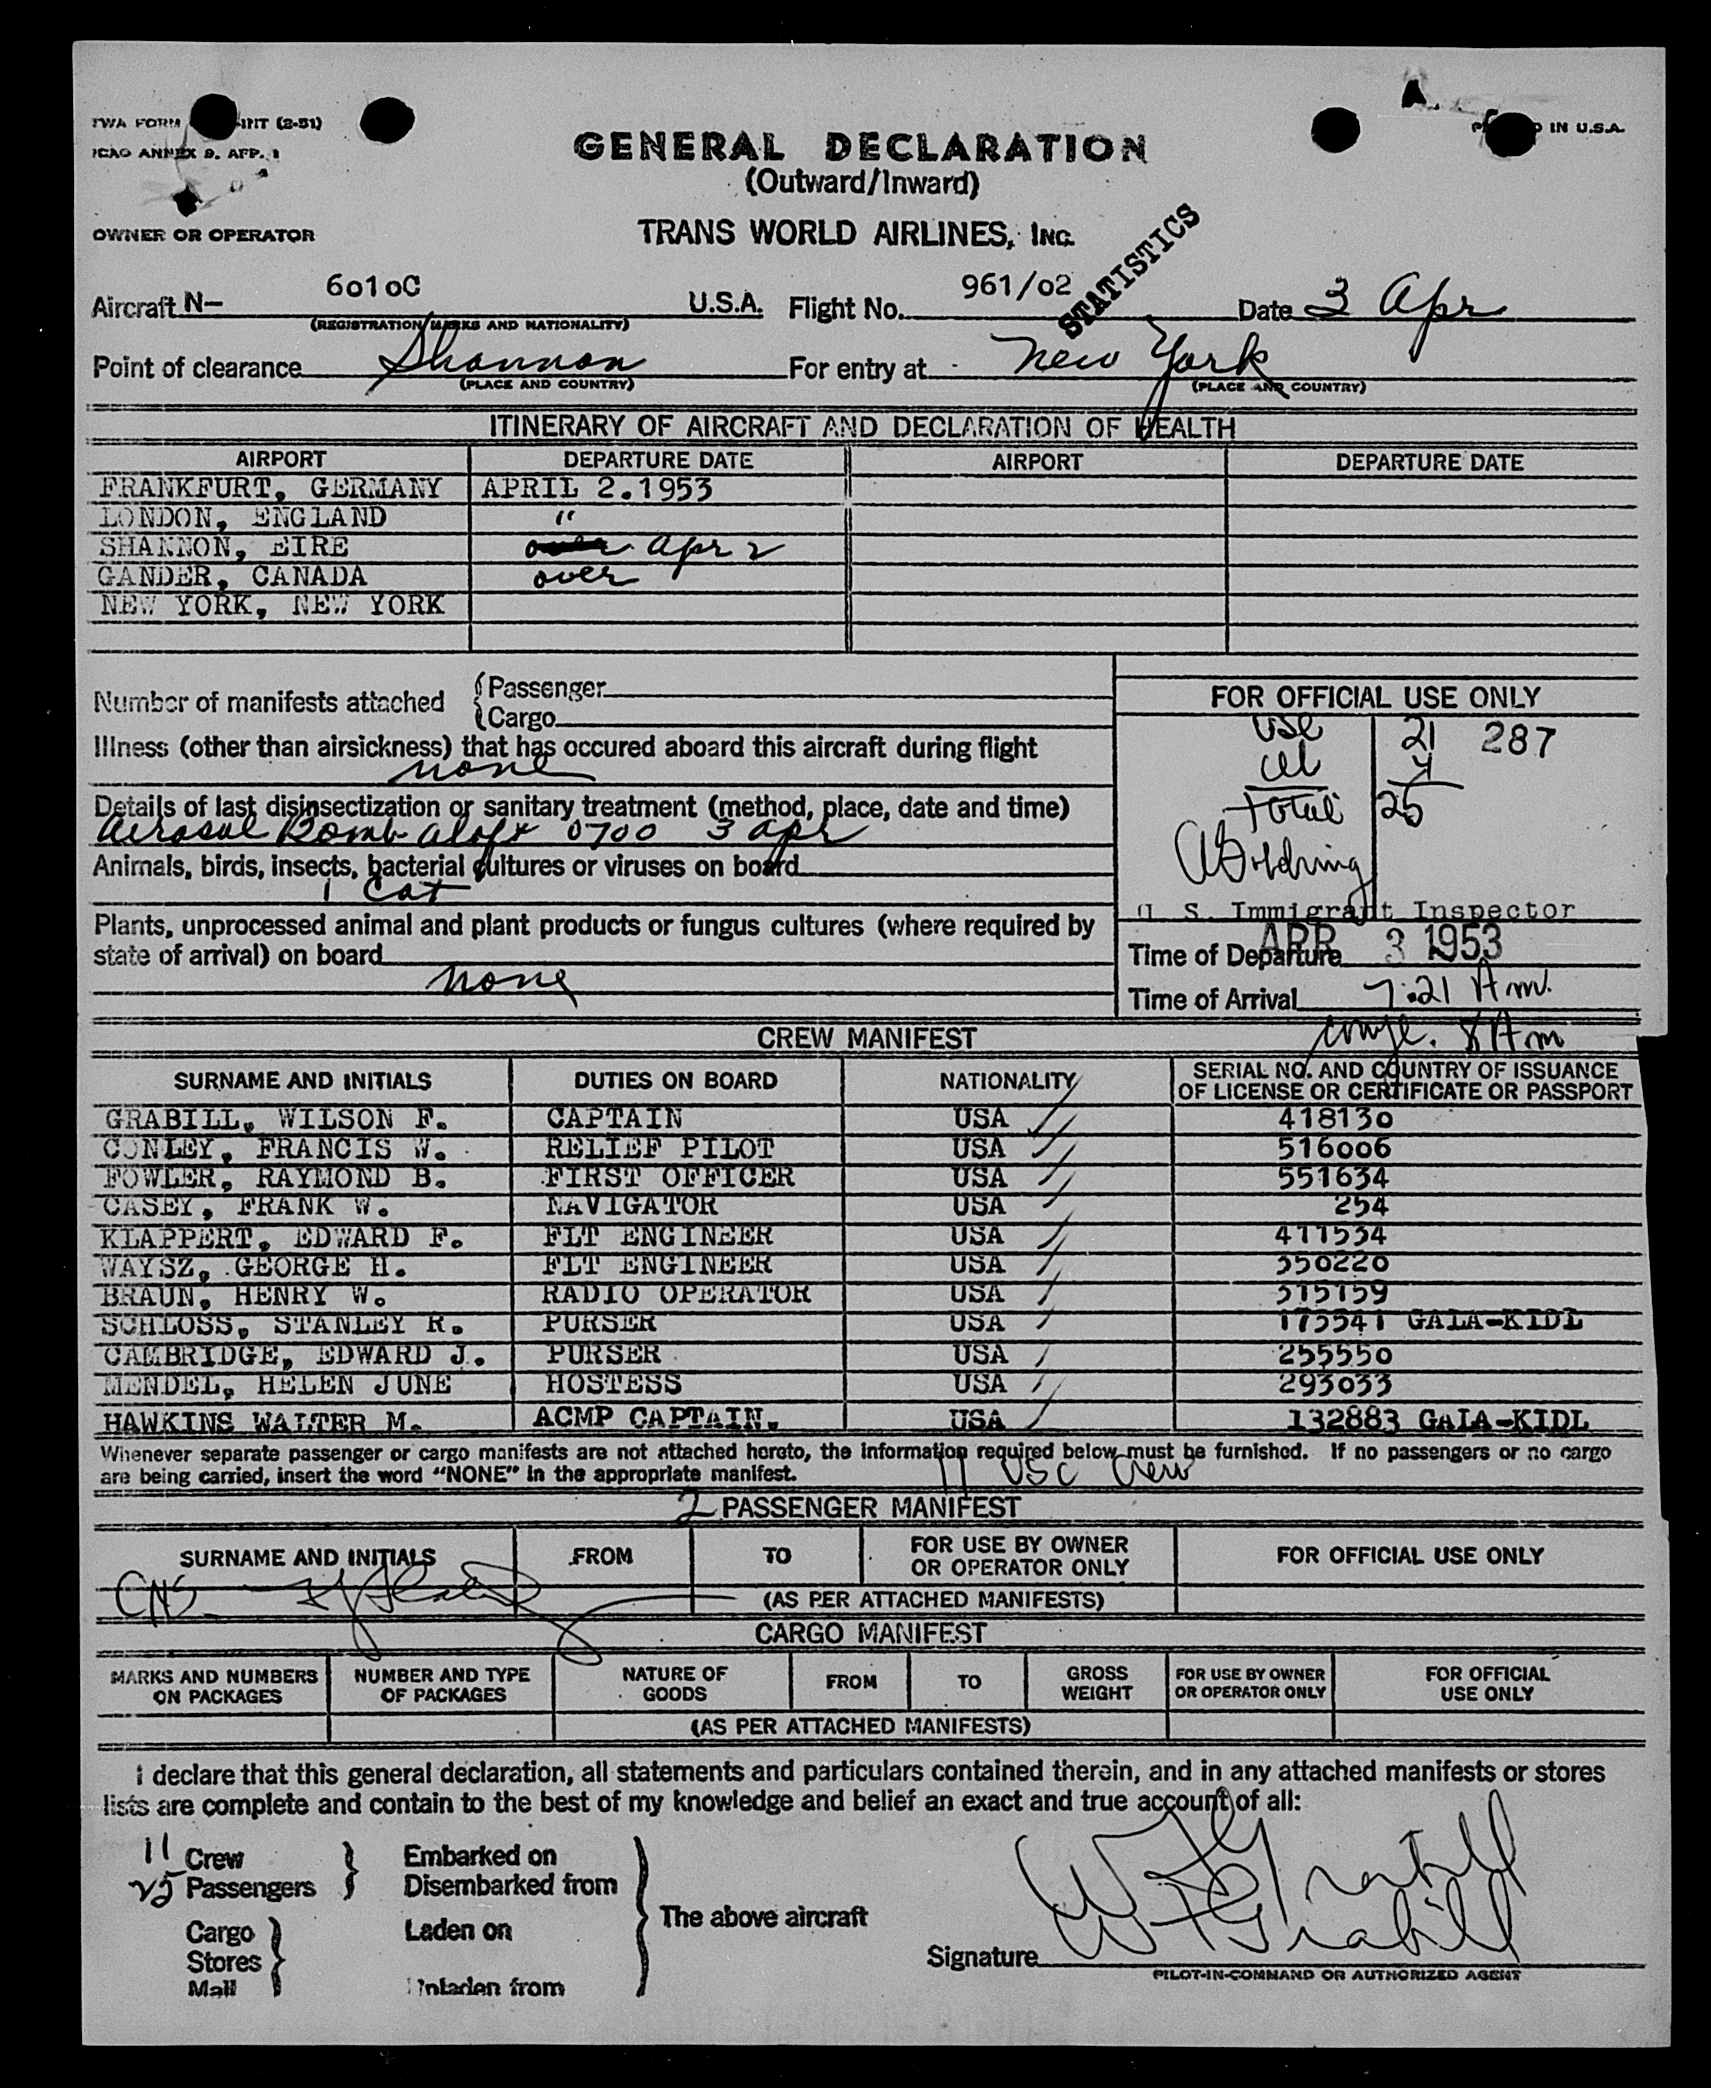 TWA FORM INT (2-51)
PRINTED IN U.S.A.
ICAO ANNEX 9. APP. 1
GENERAL DECLARATION
(Outward/Inward)
OWNER OR OPERATOR
TRANS WORLD AIRLINES, INC.
STATISTICS
Aircraft N- 6010C U.S.A. Flight No. 961/02 Date 3 Apr
(REGISTRATION MARKS AND NATIONALITY)
Point of clearance Shannon For entry at New York
(PLACE AND COUNTRY) (PLACE AND COUNTRY)
ITINERARY OF AIRCRAFT AND DECLARATION OF HEALTH
AIRPORT DEPARTURE DATE AIRPORT DEPARTURE DATE
FRANKFURT, GERMANY APRIL 2.1953
LONDON, ENGLAND "
SHANNON, EIRE over Apr 2
GANDER, CANADA over
NEW YORK, NEW YORK
Number of manifests attached { Passenger
{ Cargo
Illness (other than airsickness) that has occured aboard this aircraft during flight
none
Details of last disinsectization or sanitary treatment (method, place, date and time)
Aerosol Bomb aloft 0700 3 Apr
Animals, birds, insects, bacterial cultures or viruses on board
1 Cat
Plants, unprocessed animal and plant products or fungus cultures (where required by
state of arrival) on board
none
FOR OFFICIAL USE ONLY
USC 21 287
al 4
Total 25
U. S. Immigrant Inspector
APR 3 1953
Time of Departure
Time of Arrival 7:21 Am.
8 Am
CREW MANIFEST
SURNAME AND INITIALS DUTIES ON BOARD NATIONALITY SERIAL NO. AND COUNTRY OF ISSUANCE
OF LICENSE OR CERTIFICATE OR PASSPORT
GRABILL, WILSON F. CAPTAIN USA 418130
CONLEY, FRANCIS W. RELIEF PILOT USA 516006
FOWLER, RAYMOND B. FIRST OFFICER USA 551634
CASEY, FRANK W. NAVIGATOR USA 254
KLAPPERT, EDWARD F. FLT ENGINEER USA 411534
WAYSZ, GEORGE H. FLT ENGINEER USA 550220
BRAUN, HENRY W. RADIO OPERATOR USA 515159
SCHLOSS, STANLEY R. PURSER USA 173541 GALA-KIDL
CAMBRIDGE, EDWARD J. PURSER USA 255550
MENDEL, HELEN JUNE HOSTESS USA 293033
HAWKINS WALTER M. ACMP CAPTAIN. USA 132883 GAIA-KIDL
Whenever separate passenger or cargo manifests are not attached hereto, the information required below must be furnished. If no passengers or no cargo
are being carried, insert the word "NONE" in the appropriate manifest.
11 USC Crew
2 PASSENGER MANIFEST
SURNAME AND INITIALS FROM TO FOR USE BY OWNER
OR OPERATOR ONLY FOR OFFICIAL USE ONLY
(AS PER ATTACHED MANIFESTS)
CARGO MANIFEST
MARKS AND NUMBERS
ON PACKAGES NUMBER AND TYPE
OF PACKAGES NATURE OF
GOODS FROM TO GROSS
WEIGHT FOR USE BY OWNER
OR OPERATOR ONLY FOR OFFICIAL
USE ONLY
(AS PER ATTACHED MANIFESTS)
I declare that this general declaration, all statements and particulars contained therein, and in any attached manifests or stores
lists are complete and contain to the best of my knowledge and belief an exact and true account of all:
11 Crew Embarked on
25 Passengers Disembarked from
The above aircraft
Cargo Laden on
Stores
Mail Unladen from
W F Grabill
W F Grabill
Signature
PILOT-IN-COMMAND OR AUTHORIZED AGENT